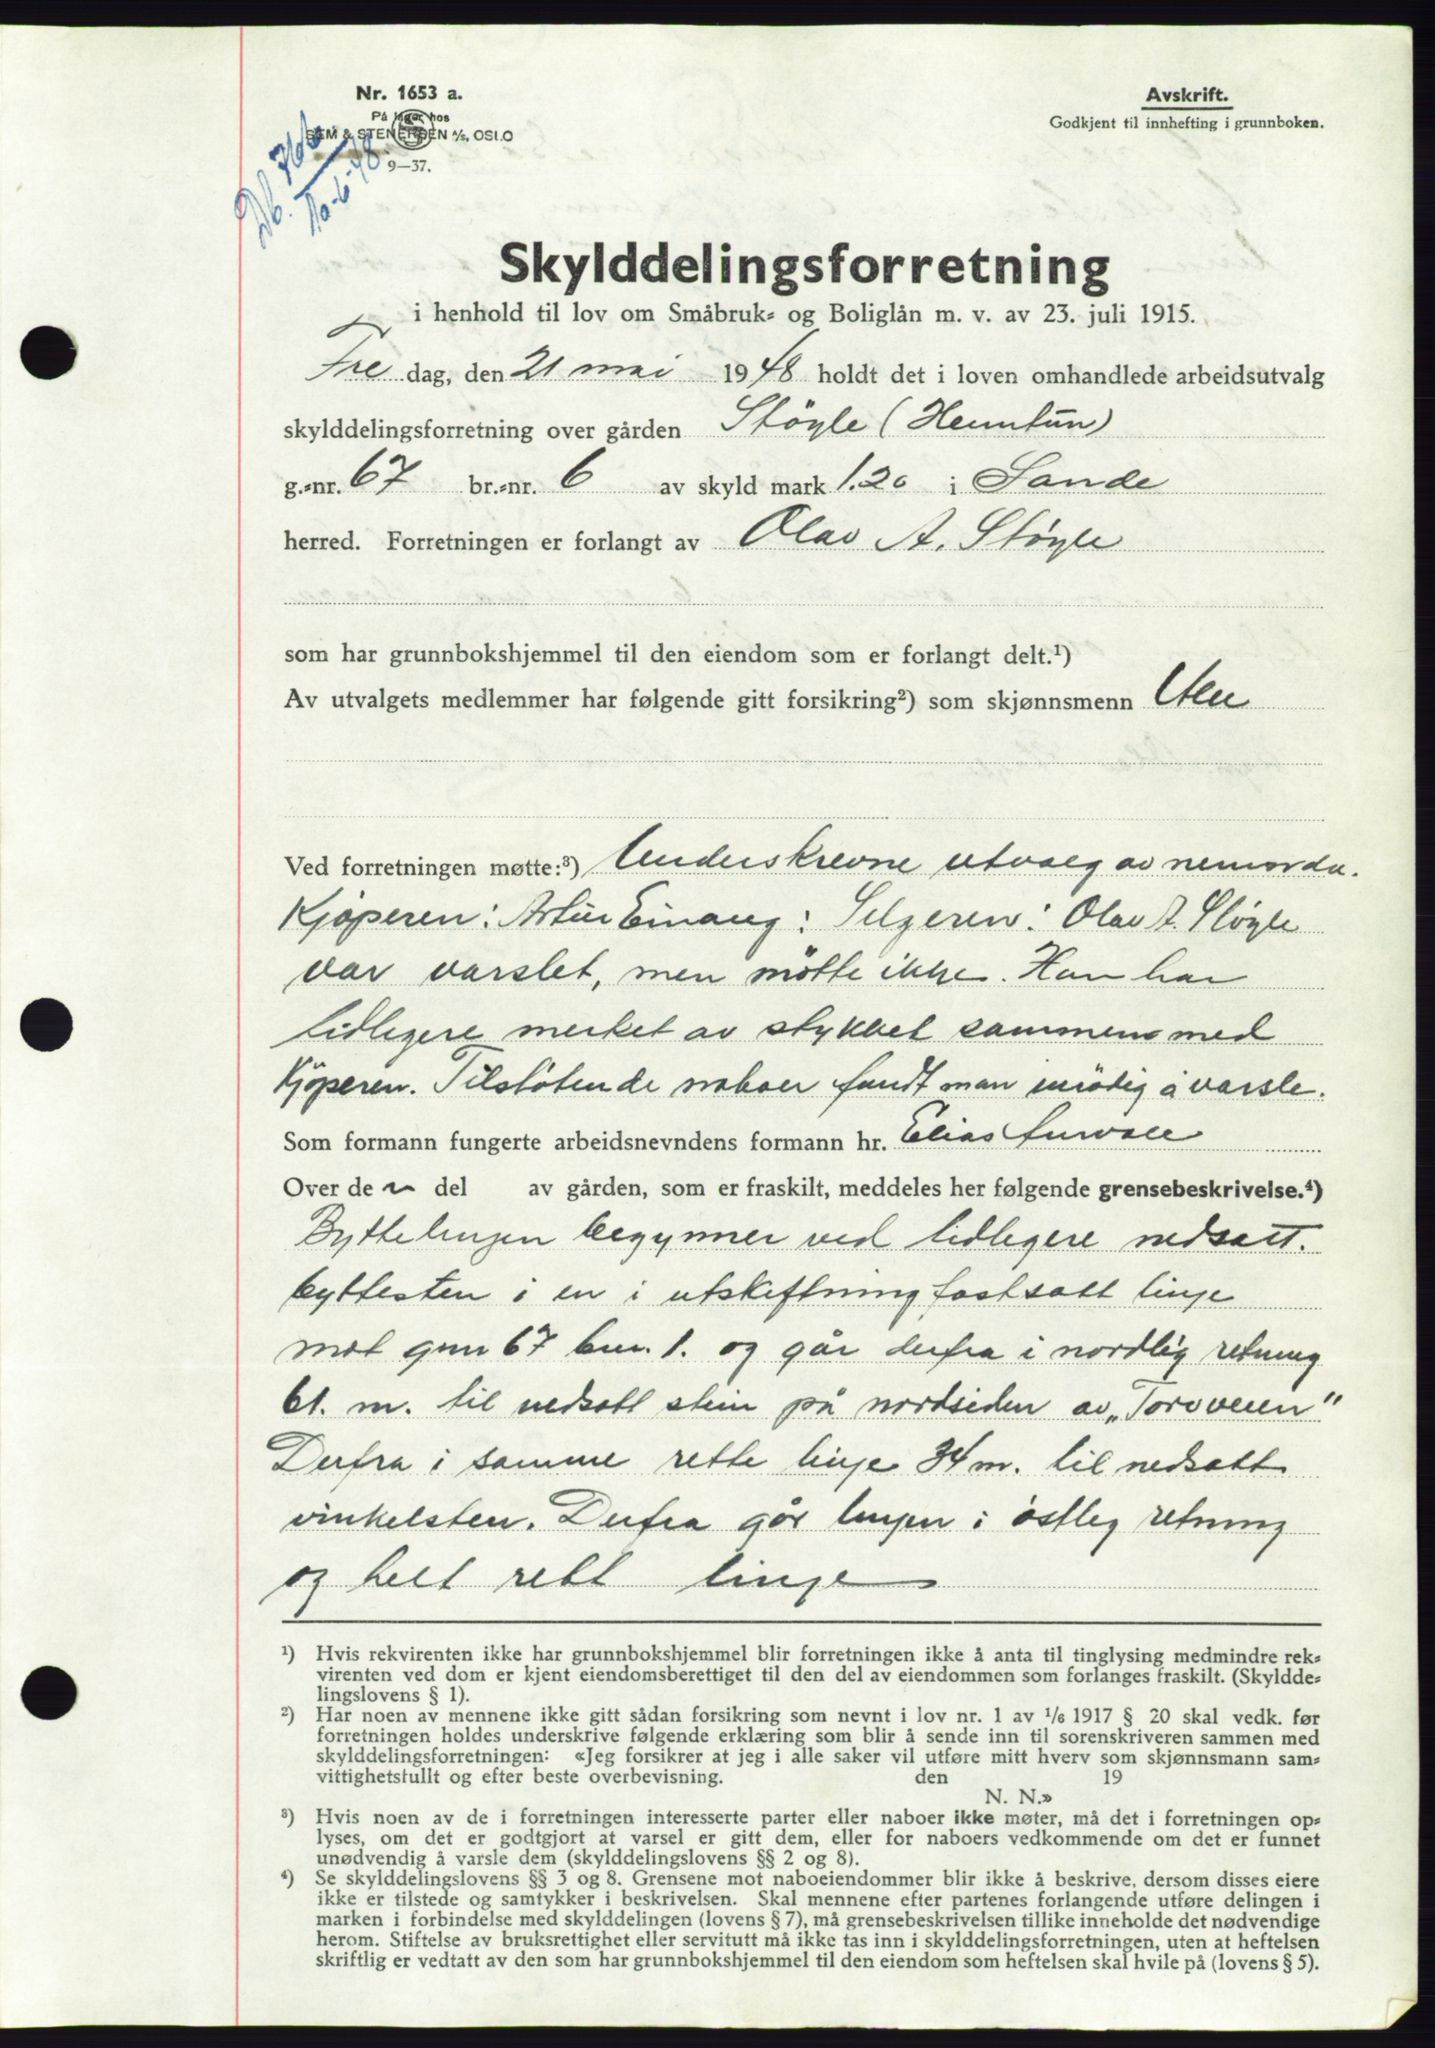 Nr. 1653 a.
På lager hos
SEM & STENERSEN A/S, OSLO
9—37.
Avskrift.
Godkjent til innhefting i grunnboken.
Db. 766
10-6-48.
Skylddelingsforretning
i henhold til lov om Småbruk- og Boliglån m. v. av 23. juli 1915.
Fre dag, den 21 mai 1948 holdt det i loven omhandlede arbeidsutvalg
skylddelingsforretning over gården Støyle (Hemtun)
g.-nr. 67 br.-nr. 6 av skyld mark 1.20 i Sande
herred. Forretningen er forlangt av Olav A. Støyle
som har grunnbokshjemmel til den eiendom som er forlangt delt.¹)
Av utvalgets medlemmer har følgende gitt forsikring²) som skjønnsmenn
Ved forretningen møtte:³) Underskrevne utvalg av nemnda.
Kjøperen: Artur Einang: Selgeren: Olav A. Støyle
var varslet, men møtte ikke. Han har
tidligere merket av stykket sammen med
Kjøperen. Tilstøtende naboer fandt man unødig å varsle.
Som formann fungerte arbeidsnevndens formann hr. Elias
Over de n del av gården, som er fraskilt, meddeles her følgende grensebeskrivelse.⁴)
Byttelinjen begynner ved tidligere nedsatt
byttesten i en i utskiftning fastsatt linje
mot gnr 67 bnr. 1. og går derfra i nordlig retning
61. m. til nedsatt stein på nordsiden av „Torvveien"
Derfra i samme rette linje 34 m. til nedsatt
vinkelsten. Derfra går linjen i østleg retning
og helt rett linje
¹) Hvis rekvirenten ikke har grunnbokshjemmel blir forretningen ikke å anta til tinglysing medmindre rek-
virenten ved dom er kjent eiendomsberettiget til den del av eiendommen som forlanges fraskilt. (Skyldde-
lingslovens § 1).
²) Har noen av mennene ikke gitt sådan forsikring som nevnt i lov nr. 1 av 1/6 1917 § 20 skal vedk. før
forretningen holdes underskrive følgende erklæring som blir å sende inn til sorenskriveren sammen med
skylddelingsforretningen: «Jeg forsikrer at jeg i alle saker vil utføre mitt hverv som skjønnsmann sam-
vittighetsfullt og efter beste overbevisning. den 19
N. N.»
³) Hvis noen av de i forretningen interesserte parter eller naboer ikke møter, må det i forretningen op-
lyses, om det er godtgjort at varsel er gitt dem, eller for naboers vedkommende om det er funnet
unødvendig å varsle dem (skylddelingslovens §§ 2 og 8).
⁴) Se skylddelingslovens §§ 3 og 8. Grensene mot naboeiendommer blir ikke å beskrive, dersom disses eiere
ikke er tilstede og samtykker i beskrivelsen. Skal mennene efter partenes forlangende utføre delingen i
marken i forbindelse med skylddelingen (lovens § 7), må grensebeskrivelsen tillike inneholde det nødvendige
herom. Stiftelse av bruksrettighet eller servitutt må ikke tas inn i skylddelingsforretningen, uten at heftelsen
skriftlig er vedtatt av den som har grunnbokshjemmel til den eiendom som heftelsen skal hvile på (lovens § 5).